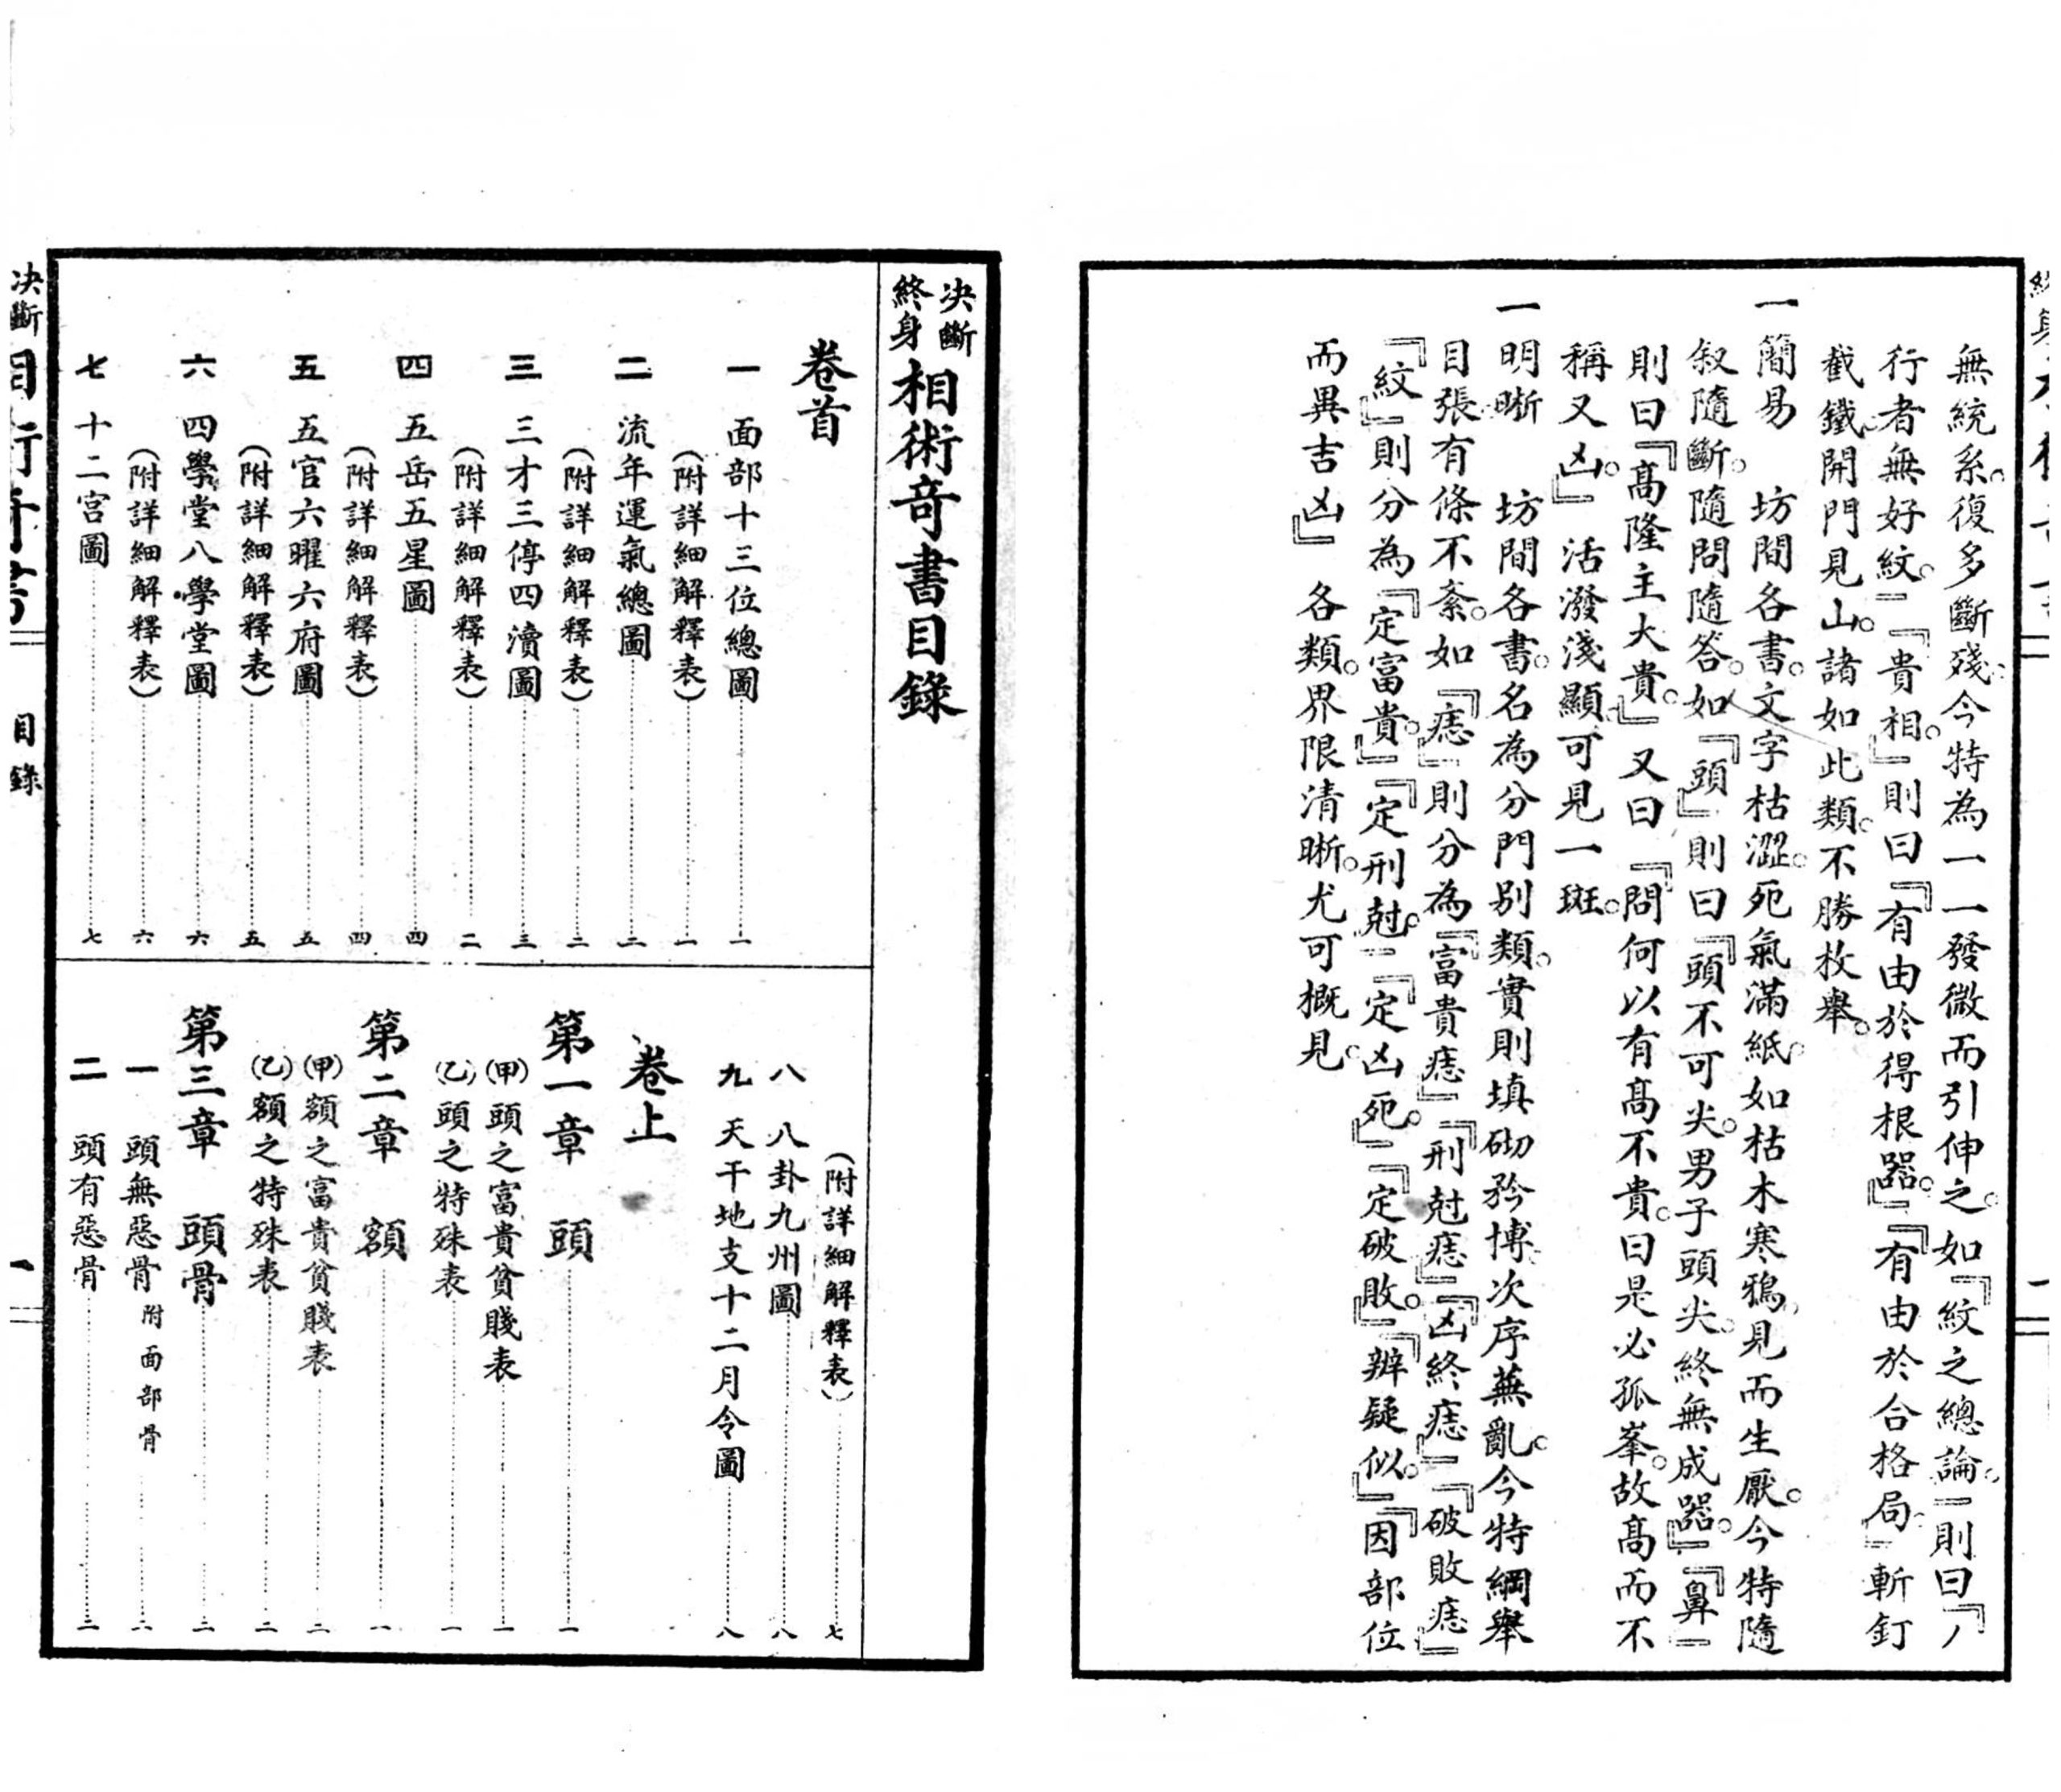 無統系。復多斷殘。今特為一一發微而引伸之。如『紋之總論。』則曰『
行者無好紋。』『貴相。』則曰『有由於得根器。』『有由於合格局。』斬釘
截鐵。開門見山。諸如此類。不勝枚舉。
一 簡易 坊間各書。文字枯澀。死氣滿紙。如枯木寒鴉。見而生厭。今特隨
敍隨斷。隨問隨答。如『頭』則曰『頭不可尖。男子頭尖。終無成器。』『鼻』
則曰『髙隆主大貴。』又曰『問何以有髙不貴。曰是必孤峯。故髙而不
稱又凶。』活潑淺顯。可見一斑。
一 明晰 坊間各書。名為分門別類。實則填砌矜博。次序蕪亂。今特綱舉
目張。有條不紊。如『痣』則分為『富貴痣』『刑尅痣』『凶終痣』『破敗痣』
『紋』則分為『定富貴。』『定刑尅。』『定凶死。』『定破敗。』『辨疑似。』『因部位
而異吉凶』各類。界限清晰。尤可概見。
決斷終身相術奇書目錄
卷首
一 面部十三位總圖 一
(附詳細解釋表) 一
二 流年運氣總圖 二
(附詳細解釋表) 二
三 三才三停四瀆圖 三
(附詳細解釋表) 三
四 五岳五星圖 四
(附詳細解釋表) 四
五 五官六曜六府圖 五
(附詳細解釋表) 五
六 四學堂八學堂圖 六
(附詳細解釋表) 六
七 十二宮圖 七
(附詳細解釋表) 七
八 八卦九州圖 八
九 天干地支十二月令圖 八
卷上
第一章 頭 一
(甲)頭之富貴貧賤表 一
(乙)頭之特殊表 一
第二章 額 一
(甲)額之富貴貧賤表 二
(乙)額之特殊表 二
第三章 頭骨 二
一 頭無惡骨 附面部骨 二
二 頭有惡骨 二
決斷
目錄
一